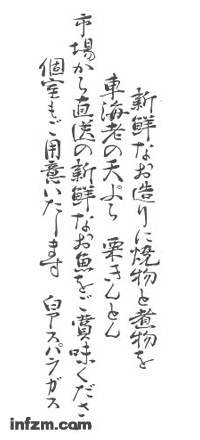 新鮮なお造りに焼物と煮物を
車海老の天ぷら 栗きんとん
市場から直送の新鮮なお魚をご賞味くださ
個室もご用意いたします 白アスパラガス
infzm.com